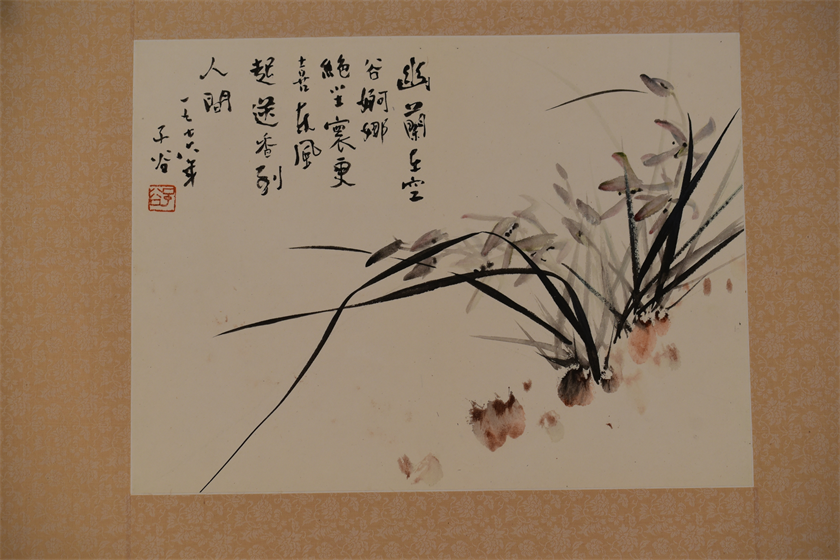 幽蘭在空
谷婀娜
絕尘寰更
喜东風
起送香到
人間
一九七六年
子谷
子谷